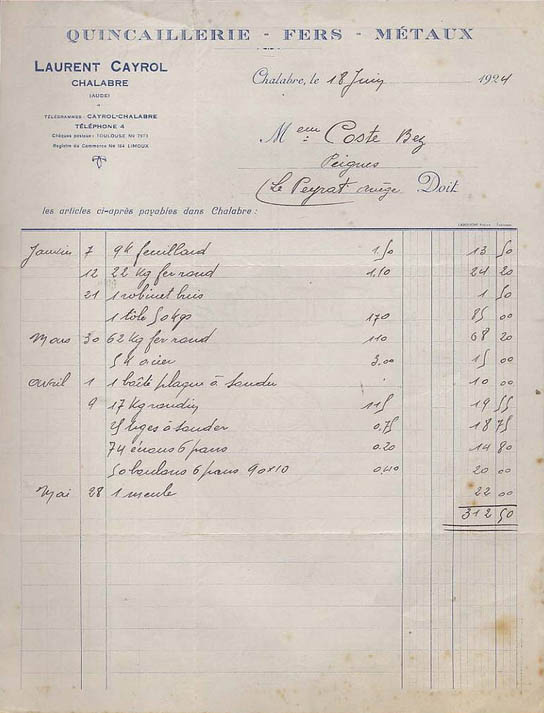 QUINCAILLERIE - FERS - MÉTAUX
LAURENT CAYROL
CHALABRE
(AUDE)
TÉLÉGRAMMES : CAYROL-CHALABRE
TÉLÉPHONE 4
Chèques postaux : TOULOUSE No 7973
Registre du Commerce No 164 LIMOUX
Chalabre, le 18 Juin 1924
M Coste Bez
Peignes
Le Peyrat Ariège Doit
les articles ci-après payables dans Chalabre :
Janvier 7 9 k feuillard 1,50 13 50
12 22 Kg fer rond 1,10 24 20
21 1 robinet buis 1 50
1 tôle 50 kgs 170 85 00
Mars 30 62 Kg fer rond 110 68 20
5 k acier 3.00 15 00
avril 1 1 boîte plaque à souder 10 00
9 17 Kg rondin 115 19 55
25 tiges à souder 0,75 18 75
74 écrous 6 pans 0.20 14 80
50 boulons 6 pans 90x10 0,40 20 00
Mai 28 1 meule 22 00
312 50